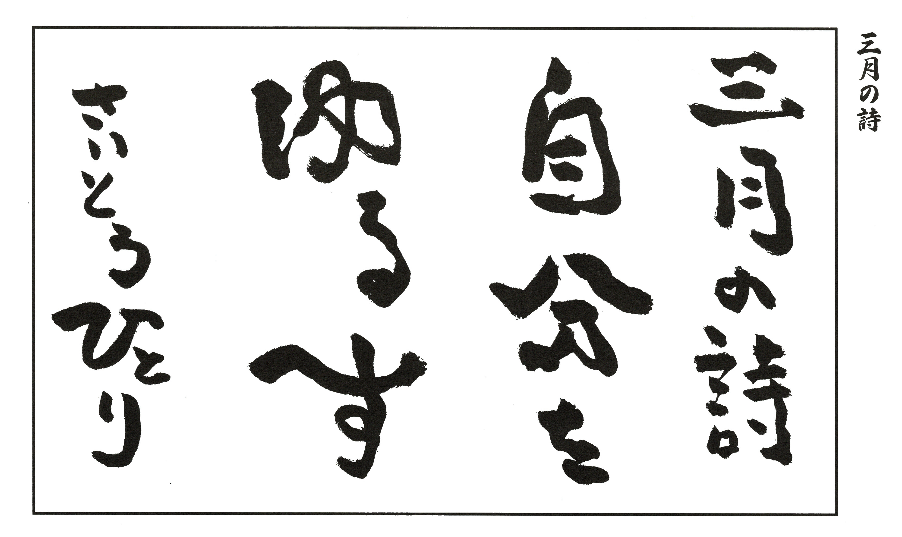 三月の詩
三月の詩
自分を
ゆるす
さいとうひとり